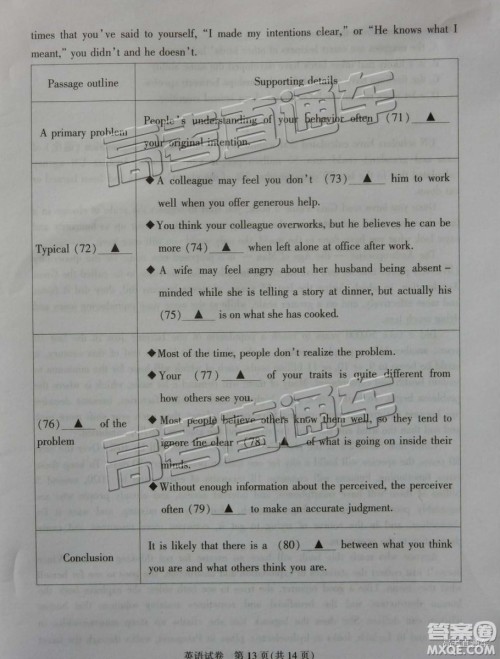 times that you've said to yourself, "I made my intentions clear," or "He knows what I
meant," you didn't and he doesn't.
Passage outline
Supporting details
A primary problem
People's understanding of your behavior often (71) ▲
your original intention.
Typical (72) ▲
◆A colleague may feel you don't (73) ▲ him to work
well when you offer generous help.
◆You think your colleague overworks, but he believes he can be
more (74) ▲ when left alone at office after work.
◆A wife may feel angry about her husband being absent-
minded while she is telling a story at dinner, but actually his
(75) ▲ is on what she has cooked.
(76) ▲ of the
problem
◆Most of the time, people don't realize the problem.
◆Your (77) ▲ of your traits is quite different from
how others see you.
◆Most people believe others know them well, so they tend to
ignore the clear (78) ▲ of what is going on inside their
minds.
◆Without enough information about the perceived, the perceiver
often (79) ▲ to make an accurate judgment.
Conclusion
It is likely that there is a (80) ▲ between what you think
you are and what others think you are.
英语试卷 第13页(共14页)
高考直通车
高考直通车
答案圈
MXQE.COM